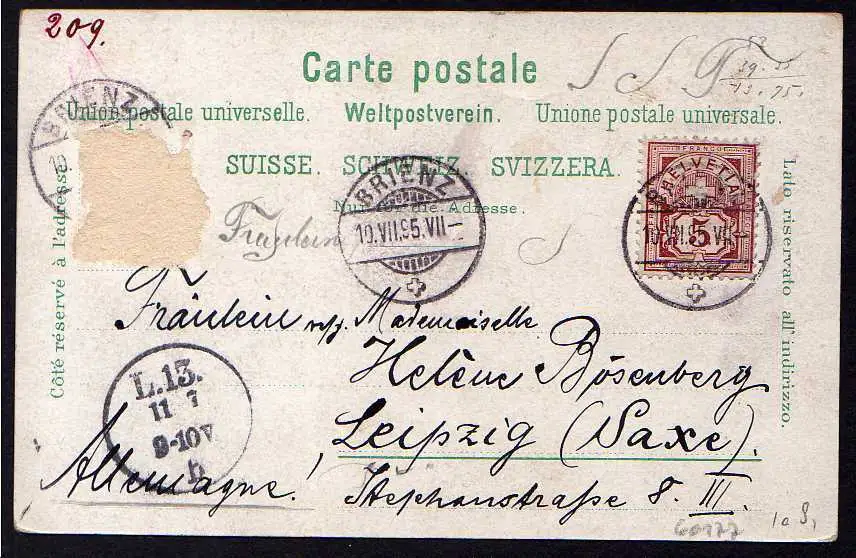 209.
Carte postale
Union postale universelle. Weltpostverein. Unione postale universale.
SUISSE. SCHWEIZ. SVIZZERA.
Nur für die Adresse.
Côté réservé à l'adresse.
Lato riservato all' indirizzo.
BRIENZ
BRIENZ
10.VII.95.VII—
FRANCO
HELVETIA
5
10.VII.95.VII—
Fräulein
Fräulein Mademoiselle
Helène Bösenberg
Leipzig (Saxe).
Stephanstraße 8. III.
Allemagne!
L.13.
11 7
9-10V
b